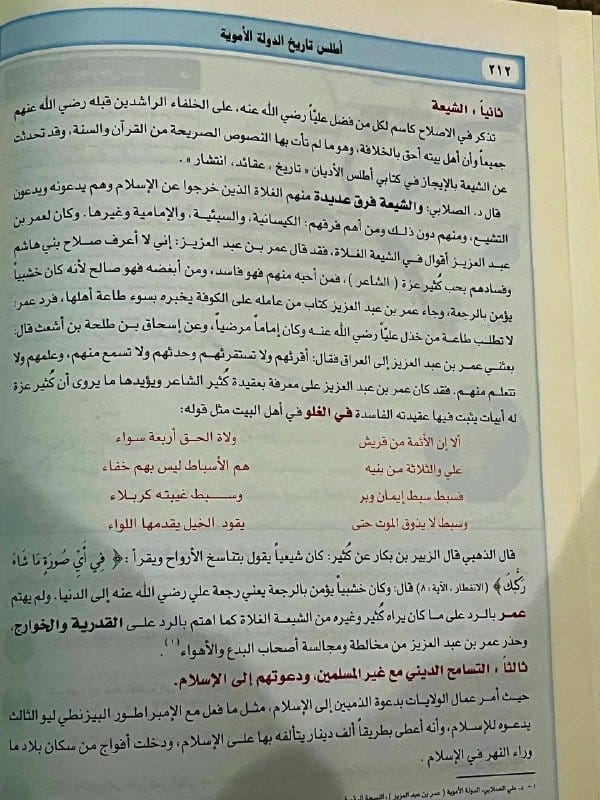 أطلس تاريخ الدولة الأموية
٢١٢
ثانياً : الشيعة
تذكر في الاصلاح كاسم لكل من فضل عليّاً رضي الله عنه، على الخلفاء الراشدين قبله رضي الله عنهم
جميعاً وأن أهل بيته أحق بالخلافة، وهو ما لم تأت بها النصوص الصريحة من القرآن والسنة، وقد تحدثت
عن الشيعة بالإيجاز في كتابي أطلس الأديان « تاريخ ، عقائد، انتشار » .
قال د. الصلابي: والشيعة فرق عديدة منهم الغلاة الذين خرجوا عن الإسلام وهم يدعونه ويدعون
التشيع، ومنهم دون ذلك ومن أهم فرقهم: الكيسانية، والسبئية، والإمامية وغيرها. وكان لعمر بن
عبد العزيز أقوال في الشيعة الغلاة، فقد قال عمر بن عبد العزيز: إني لا أعرف صلاح بني هاشم
وفسادهم بحب كُثير عزة ( الشاعر )، فمن أحبه منهم فهو فاسد، ومن أبغضه فهو صالح لأنه كان خشبياً
يؤمن بالرجعة، وجاء عمر بن عبد العزيز كتاب من عامله على الكوفة يخبره بسوء طاعة أهلها، فرد عمر:
لا تطلب طاعة من خذل عليّاً رضي الله عنه وكان إماماً مرضياً، وعن إسحاق بن طلحة بن أشعث قال:
بعثني عمر بن عبد العزيز إلى العراق فقال: أقرئهم ولا تستقرئهم وحدثهم ولا تسمع منهم، وعلمهم ولا
تتعلم منهم. فقد كان عمر بن عبد العزيز على معرفة بعقيدة كُثير الشاعر ويؤيدها ما يروى أن كُثير عزة
له أبيات يثبت فيها عقيدته الفاسدة في الغلو في أهل البيت مثل قوله:
ألا إن الأئمة من قريش ولاة الحق أربعة سواء
علي والثلاثة من بنيه هم الأسباط ليس بهم خفاء
فسبط سبط إيمان وبر وسبط غيبته كربلاء
وسبط لا يذوق الموت حتى يقود الخيل يقدمها اللواء
قال الذهبي قال الزبير بن بكار عن كُثير: كان شيعياً يقول بتناسخ الأرواح ويقرأ : ﴿ فِي أَيِّ صُورَةٍ مَا شَاءَ
رَكَّبَكَ ﴾ (الانفطار ، الآية : ٨) قال: وكان خشبياً يؤمن بالرجعة يعني رجعة علي رضي الله عنه إلى الدنيا. ولم يهتم
عمر بالرد على ما كان يراه كُثير وغيره من الشيعة الغلاة كما اهتم بالرد على القدرية والخوارج،
وحذر عمر بن عبد العزيز من مخالطة ومجالسة أصحاب البدع والأهواء (١) .
ثالثاً : التسامح الديني مع غير المسلمين، ودعوتهم إلى الإسلام.
حيث أمر عمال الولايات بدعوة الذميين إلى الإسلام، مثل ما فعل مع الإمبراطور البيزنطي ليو الثالث
يدعوه للإسلام، وأنه أعطى بطريقاً ألف دينار يتألفه بها على الإسلام، ودخلت أفواج من سكان بلاد ما
وراء النهر في الإسلام .
١ - د. علي الصلابي، الدولة الأموية ( عمر بن عبد العزيز )